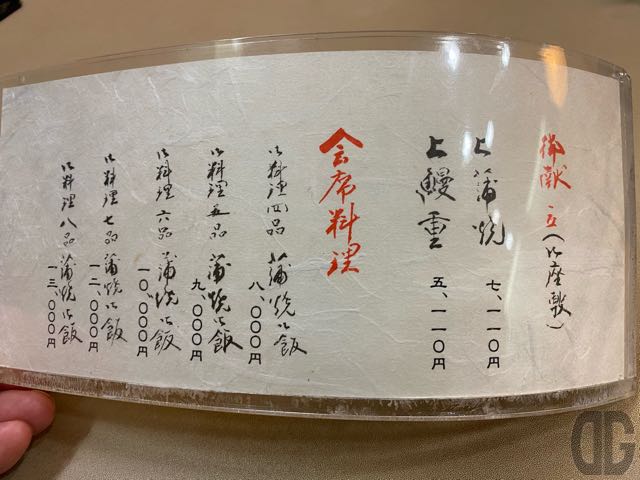 御献立(お座敷)
上蒲焼
七、一一〇円
上鰻重
五、一一〇円
会席料理
お料理四品 蒲焼お飯
八、〇〇〇円
お料理五品 蒲焼お飯
九、〇〇〇円
お料理六品 蒲焼お飯
一〇、〇〇〇円
お料理七品 蒲焼お飯
一二、〇〇〇円
お料理八品 蒲焼お飯
一三、〇〇〇円
DG